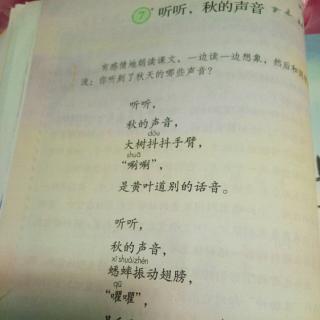 7* 听听，秋的声音
有感情地朗读课文，一边读一边想象，然后和
流：你听到了秋天的哪些声音？
听听，
秋的声音，
dǒu
大树抖抖手臂，
shuā
“唰唰”，
是黄叶道别的话音。
听听，
秋的声音，
xī shuài zhèn
蟋蟀振动翅膀，
qú
“㘗㘗”，